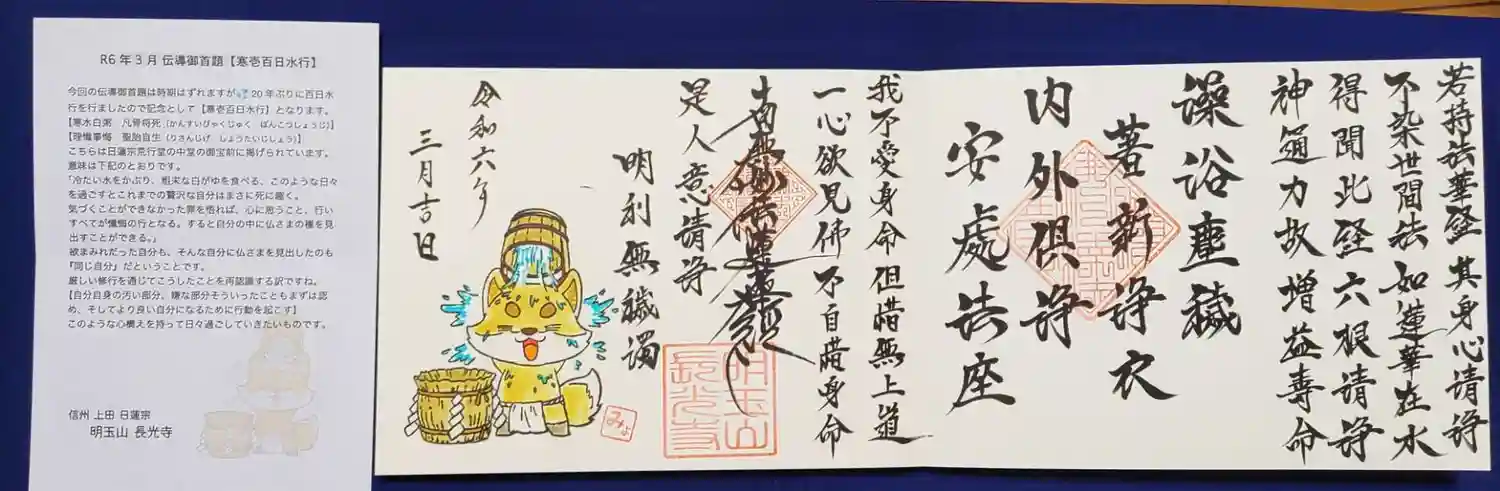 R6年3月 伝導御首題【寒壱百日水行】
今回の伝導御首題は時期はずれますが💦20年ぶりに百日水
行を行ましたので記念として【寒壱百日水行】となります。
【寒水白粥　凡骨将死（かんすいびゃくじゅく　ぼんこつしょうじ）】
【理懺事悔　聖胎自生（りさんじげ　しょうたいじしょう）】
こちらは日蓮宗荒行堂の中堂の御宝前に掲げられています。
意味は下記のとおりです。
「冷たい水をかぶり、粗末な白がゆを食べる、このような日々
を過ごすとこれまでの贅沢な自分はまさに死に趣く。
気づくことができなかった罪を悟れば、心に思うこと、行い
すべてが懺悔の行となる。すると自分の中に仏さまの種を見
出すことができる。」
欲まみれだった自分も、そんな自分に仏さまを見出したのも
『同じ自分』だということです。
厳しい修行を通じてこうしたことを再認識する訳ですね。
【自分自身の汚い部分、嫌な部分そういったこともまずは認
め、そしてより良い自分になるために行動を起こす】
このような心構えを持って日々過ごしていきたいものです。
信州 上田 日蓮宗
明玉山 長光寺
若持法華経 其身心清浄
不染世間法 如蓮華在水
得聞此経 六根清浄
神通力故 増益寿命
澡浴塵穢
著新浄衣
内外倶浄
安處法座
我不愛身命 但惜無上道
一心欲見佛 不自惜身命
南無妙法蓮華経
是人意清浄
明利無穢濁
令和六年
三月吉日
明玉山
長光寺
みょ